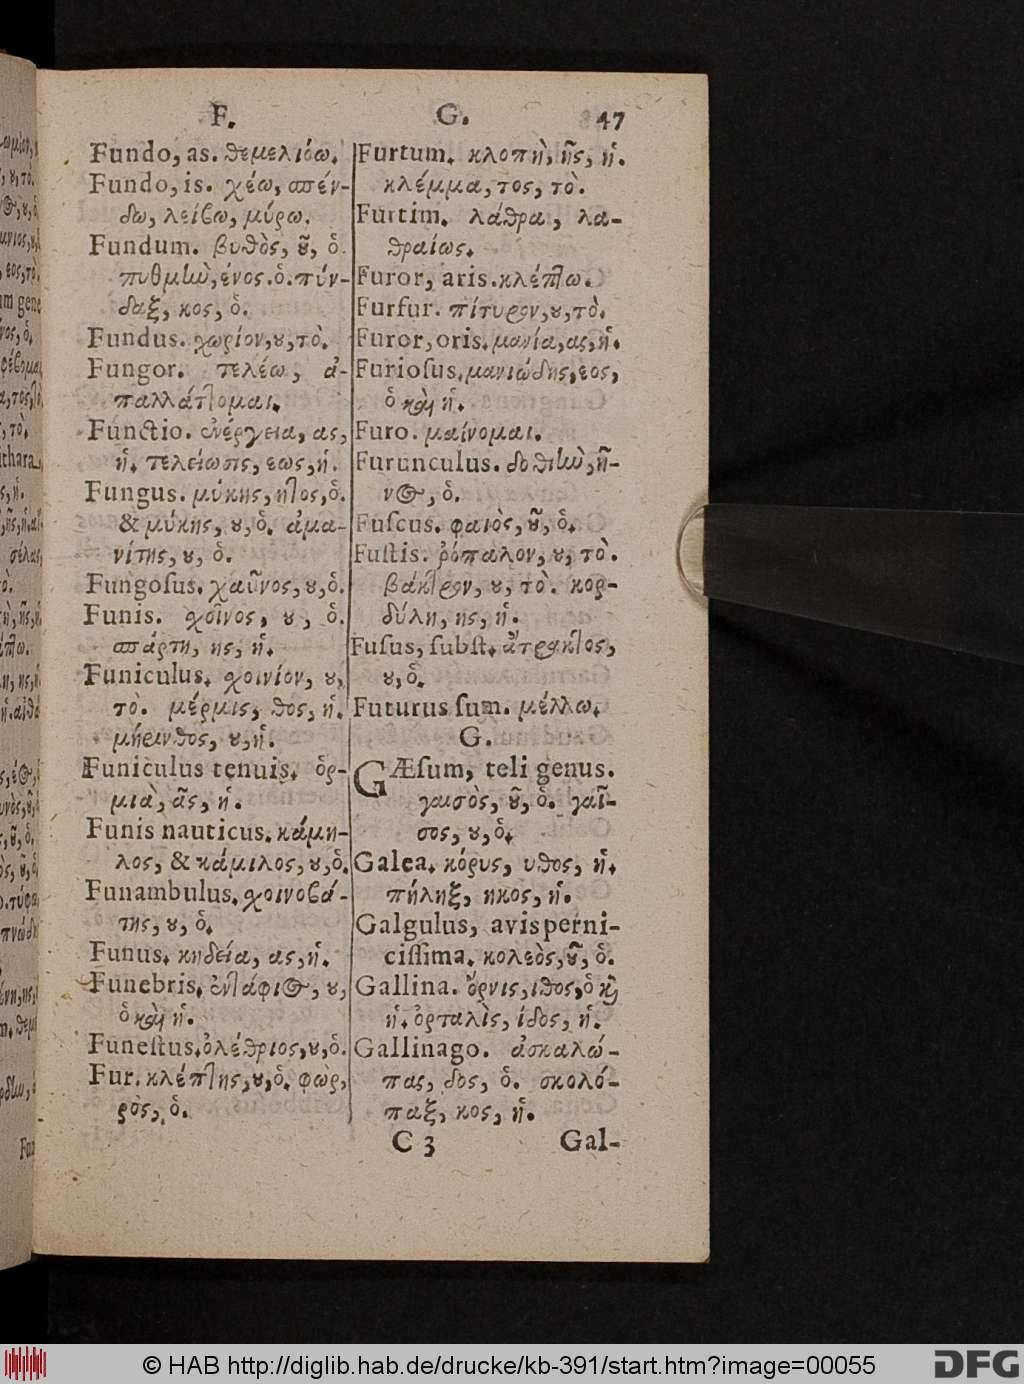 F. G. 47
Fundo, as. θεμελιόω.
Fundo, is. χέω, σπέν-
δω, λείβω, μύρω.
Fundum. βυθὸς, ȣ͂, ὁ.
πυθμὴν, ένος. ὁ. πύν-
δαξ, κος, ὁ.
Fundus. χωρίον, ȣ, τὸ.
Fungor. τελέω, ἀ-
παλλάττομαι.
Functio. ἐνέργεια, ας,
ἡ. τελείωσις, εως, ἡ.
Fungus. μύκης, ητος, ὁ.
& μύκης, ȣ, ὁ. ἀμα-
νίτης, ȣ, ὁ.
Fungoſus. χαῦνος, ȣ, ὁ.
Funis. χοῖνος, ȣ, ὁ.
σπάρτη, ης, ἡ.
Funiculus. χοινίον, ȣ,
τὸ. μέρμις, θος, ἡ.
μήρινθος, ȣ, ἡ.
Funiculus tenuis. ὁρ-
μιὰ, ᾶς, ἡ.
Funis nauticus. κάμη-
λος, & κάμιλος, ȣ, ὁ.
Funambulus. χοινοβά-
της, ȣ, ὁ.
Funus. κηδεία, ας, ἡ.
Funebris. ἐντάφιος, ȣ,
ὁ καὶ ἡ.
Funeſtus. ὀλέθριος, ȣ, ὁ.
Fur. κλέπτης, ȣ, ὁ. φὼρ,
ρὸς, ὁ.
Furtum. κλοπὴ, ῆς, ἡ.
κλέμμα, τος, τὸ.
Furtim. λάθρα, λα-
θραίως.
Furor, aris. κλέπτω.
Furfur. πίτυρον, ȣ, τὸ.
Furor, oris. μανία, ας, ἡ.
Furioſus. μανιώδης, εος,
ὁ καὶ ἡ.
Furo. μαίνομαι.
Furunculus. δοθιὴν, ῆ-
νος, ὁ.
Fuſcus. φαιὸς, ȣ͂, ὁ.
Fuſtis. ῥόπαλον, ȣ, τὸ.
βάκτρον, ȣ, τὸ. κορ-
δύλη, ης, ἡ.
Fuſus, ſubſt. ἄτρακτος,
ȣ, ὁ.
Futurus ſum. μέλλω.
G.
GÆſum, teli genus.
γαισὸς, ȣ͂, ὁ. γαῖ-
σος, ȣ, ὁ.
Galea. κόρυς, υθος, ἡ.
πήληξ, ηκος, ἡ.
Galgulus, avis perni-
ciſſima. κολεὸς, ȣ͂, ὁ.
Gallina. ὄρνις, ιθος, ὁ κỳ
ἡ. ὀρταλὶς, ίδος, ἡ.
Gallinago. ἀσκαλώ-
πας, δος, ὁ. σκολό-
παξ, κος, ἡ.
C 3 Gal-
© HAB http://diglib.hab.de/drucke/kb-391/start.htm?image=00055
DFG